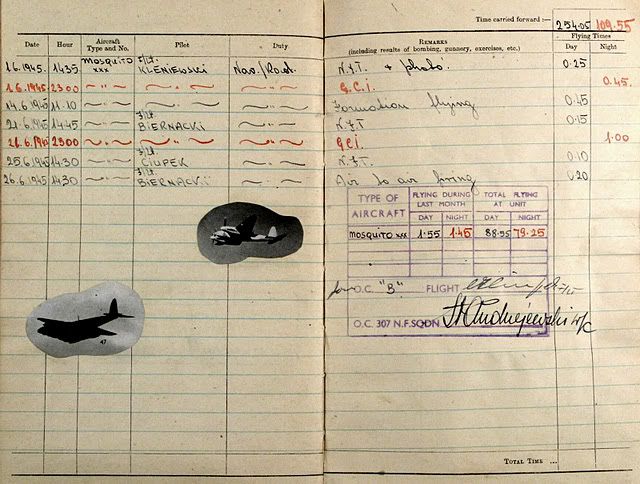 Time carried forward :— 254.05 109.55
Date Hour Aircraft Type and No. Pilot Duty Remarks (including results of bombing, gunnery, exercises, etc.) Flying Times Day Night
1.6.1945. 1435 Mosquito xxx F/Lt. KLENIEWSKI Nav./Rad. N.F.T. + photo. 0.25
1.6.1945. 2300 — " — — " — — " — G.C.I. 0.45.
14.6.1945 11.10 — " — Formation flying 0.45
21.6.1945 14.45 — " — F/Lt. BIERNACKI N.F.T. 0.15
21.6.1945 2300 — " — — " — G.C.I. 1.00
25.6.1945 14.30 — " — F/Lt. CIUPEK N.F.T. 0.10
26.6.1945 14.30 — " — F/Lt. BIERNACKI Air to air firing 0.20
TYPE OF AIRCRAFT FLYING DURING LAST MONTH TOTAL FLYING AT UNIT
DAY NIGHT DAY NIGHT
Mosquito xxx 1.55 1.45 88.55 79.25
for O.C. "B" FLIGHT
O.C. 307 N.F. SQDN W/C
47
Total Time ...